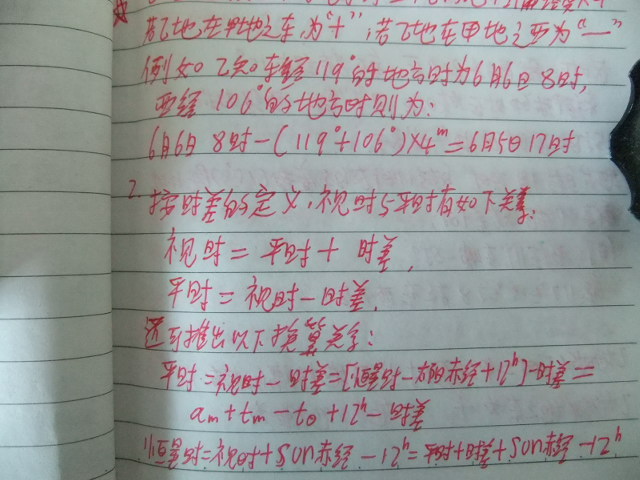 若乙地在甲地之东为“+”,若乙地在甲地之西为“—”
例如已知东经119°的地方时为6月6日8时,
西经106°的地方时则为:
6月6日8时-(119°+106°)×4ᵐ=6月5日17时
2. 按时差的定义,视时与平时有如下关系:
视时=平时+时差,
平时=视时-时差.
还可推出以下换算关系:
平时=视时-时差=[恒星时-太阳赤经+12ʰ]-时差=
am+tm-t0+12ʰ-时差
恒星时=视时+sun赤经-12ʰ=平时+时差+sun赤经-12ʰ